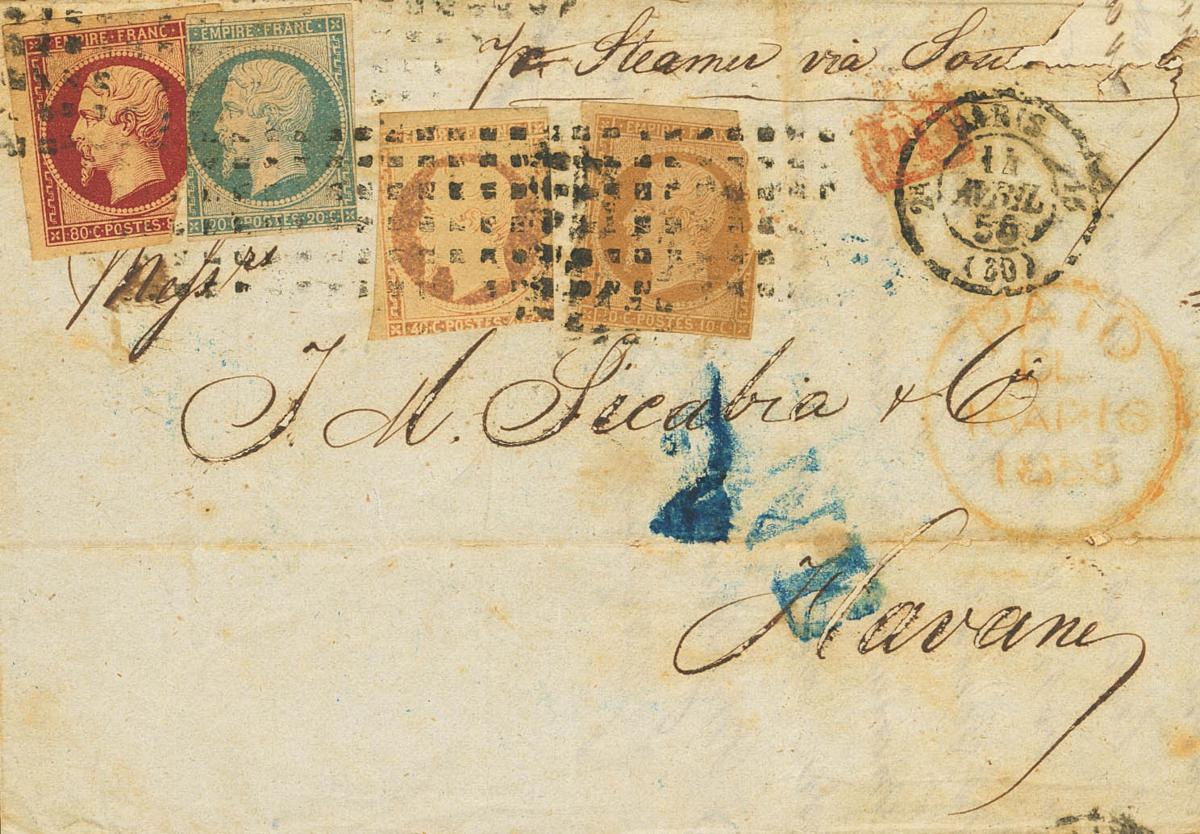 EMPIRE·FRANC
80·C·POSTES·
EMPIRE·FRANC·
20·C·POSTES·20·C
40·C·POSTES·
10·C·POSTES·10·C
pr Steamer via
PARIS
14
AVRIL
56
(60)
PAID
1856
Messrs
J. M. Sicabia & Cie
Havane